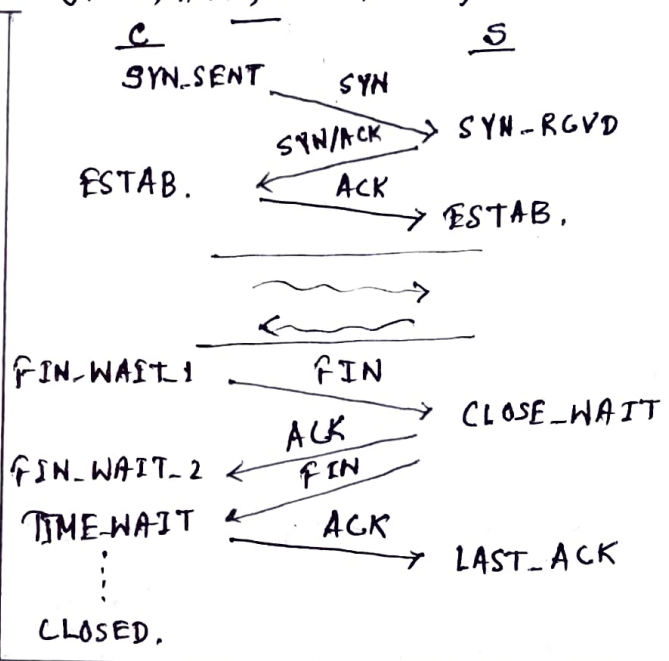 C S
SYN_SENT SYN
SYN/ACK SYN-RCVD
ESTAB. ACK
ESTAB.
FIN-WAIT_1 FIN
CLOSE_WAIT
ACK
FIN_WAIT-2 FIN
TIME_WAIT ACK
LAST_ACK
CLOSED.